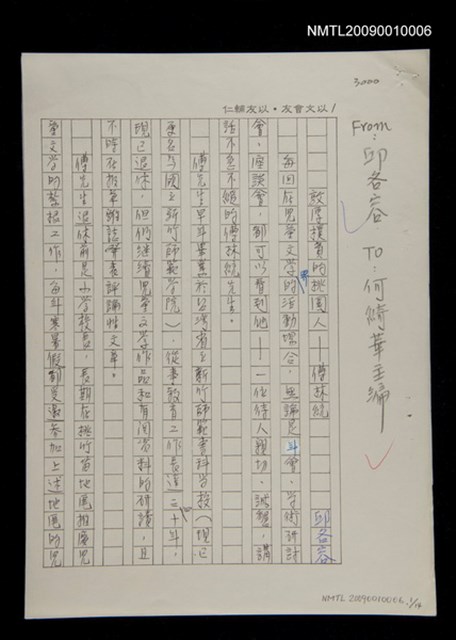 NMTL20090010006
3000
From:邱各容 TO:何綺華主編
以文會友·以友輔仁
敦厚樸實的桃園人——傅林統
邱各容
每回在兒童文學界的活動場合,無論是年會、學術研討
會、座談會,都可以看到他——一位待人親切、誠懇,講
話不急不緩的傅林統先生。
傅先生早年畢業於台灣省立新竹師範普科學校(現已
更名為國立新竹師範學院),從事教育工作長達二十年,
現已退休,但仍繼續兒童文學作品和有關資料的研讀,且
不時在報章雜誌發表評論性文章。
傅先生退休前是小學校長,長期在桃竹苗地區推廣兒
童文學的紮根工作,每年寒暑假都受邀參加上述地區的兒
NMTL20090010006 1/14